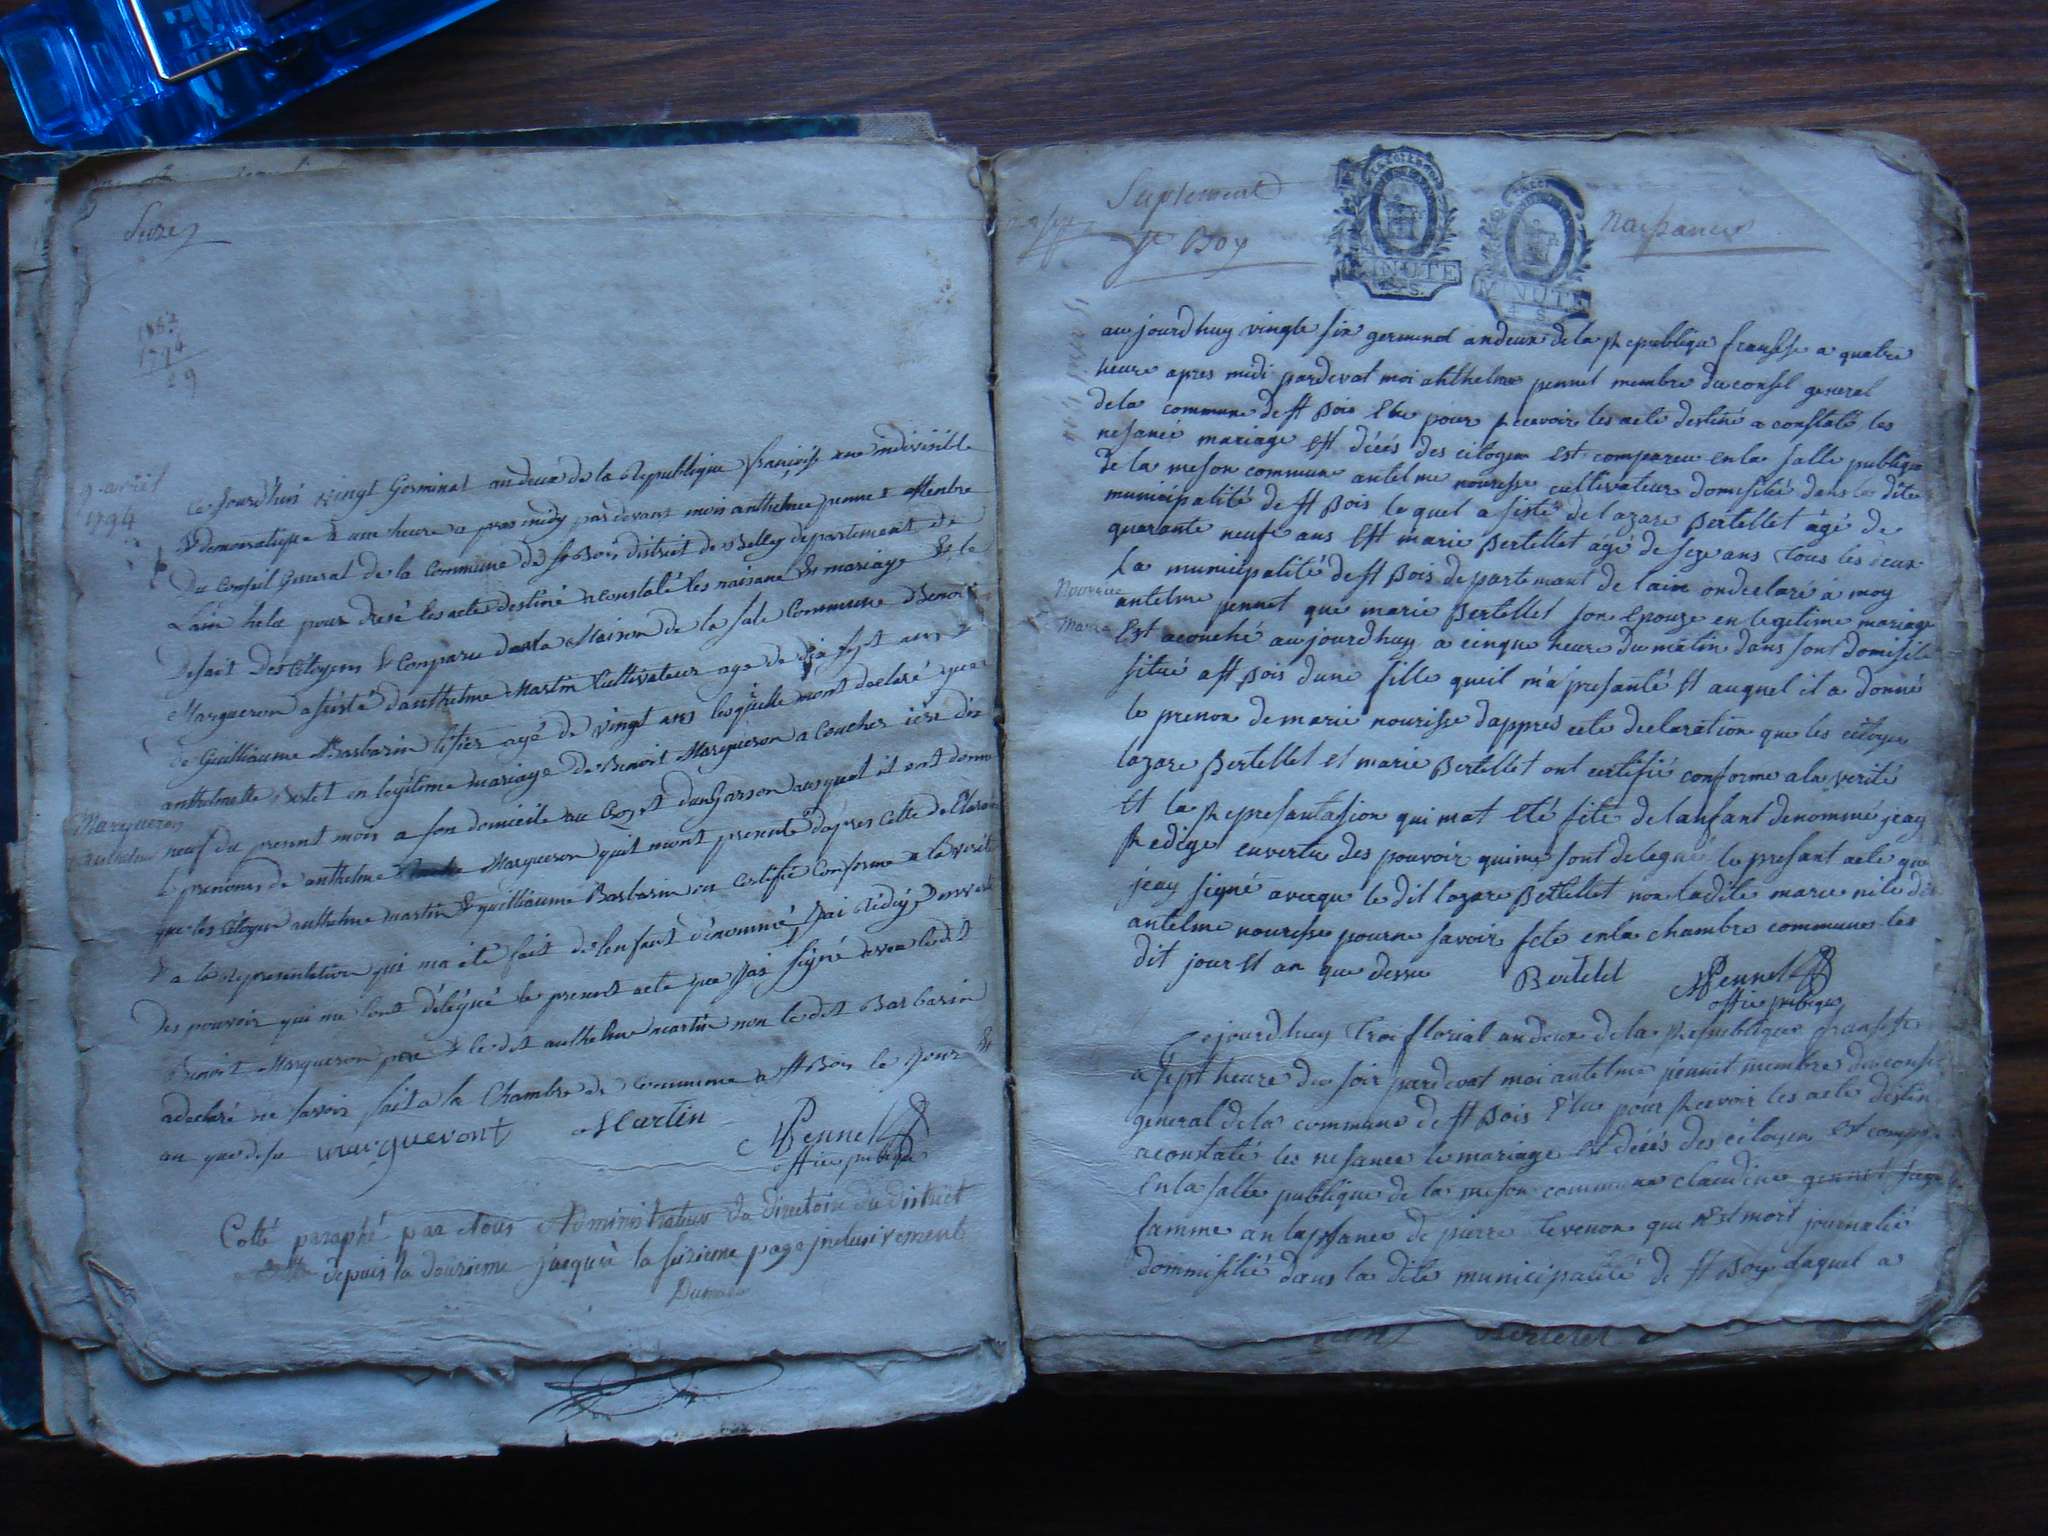 1794
9 avril
1794
ce jourd'hui vingt Germinal an deux de la Republique françoise une indivisible
& democratique à une heure a pres midy pardevant moi anthelme pennet Membre
du Conseil General de la Commune de St Bois district de Belley departement de
L'ain helu pour dresé les acte destiné a constalé les naisane & mariage & le
Desait des Citoyens & Comparu dans la Maison de la sale Commune Benoit
Margueron asisté d'anthelme Martin Cultivateur age de dix sept ans &
de Guilliaume Barbarin tisier agé de vingt ans lesquelle mont declaré que
anthelmette Bertet en legitime mariage de Benoit Margueron a Coucher ier dix
Margueron
anthelme
neuf du present mois a son domicile au Boys d'un Garson auquel il ont donné
le prenoms de anthelme Margueron quil mont presenté d'apres Cette declaration
que les Citoyen anthelme martin & guilliaume Barbarin on Certifié Conforme a la verité
& a la Representation qui ma été fait de lenfant dénommé, jai rédigé en vertu
Des pouvoir qui me sont délégué le present acte que jai signé avec ledit
Benoit Margueron pere & le dit anthelme martin non le dit Barbarin
a declaré ne savoir fait a la Chambre de Commune a St Bois le jour &
an que desu margueront Martin APennet
office publique
Cotté paraphé par Nous Administrateur du directoire du district
depuis la douzieme jusqu'à la seizieme page inclusivement
Suplement
St Boy
naissances
MINUTE
MINUTE
aujourdhuy vingte six germinal an deux de la Republique fransese a quatre
heure apres midi pardevat moi anthelme pennet membre du consel general
de la commune de St Bois Elue pour recevoir les acte destiné a constalé les
nesance mariage Et décés des citoyen Est compareu en la salle publique
de la meson commune antelme nourisse cultivateur domisilié dans la dite
municipalité de St Bois lequel asisté de lazare Bertellet âgé de
quarante neufe ans Et marie Bertellet âgé de seze ans tous les deux
la municipalité de St Bois departemant de lain on declaré à moy
Nourisse
Marie
antelme pennet que marie Bertellet son Epouze en legitime mariage
Est acouché aujourdhuy a cinque heure du matin dans sont domisile
situé a St Bois dune fille queil m'a presanté Et auquel il a donné
le prenon de marie nourisse dappres cete declaration que les citoyen
lazare Bertellet et marie Bertellet ont certifié conforme a la verité
Et la Represantasion qui mat Eté féte de lanfant denommé jeay
Redige en vertu des pouvoir quime sont delegué le presant acte que
jeay signé avecque le dit lazare Bettellet non ladite marie ni le dit
antelme nourisse pour ne savoir fete en la chambre commune les
dit jour et an que dessu Bertelet APennet
office publique
Cejourdhuy troi florial an deux de la Republique fransese
a sept heure du soir pardevat moi antelme pennet membre du conse
general de la commune de St Bois Elu pour Recevoir les acte destin
a constalé les nesance le mariage Et décés des citoyen Est compar
En la salle publique de la meson commune claudine gennet
famme an lassance de pierre tevenon qui Est mort journalié
dommisilié dans la dite municipalité de St Boy laquel a